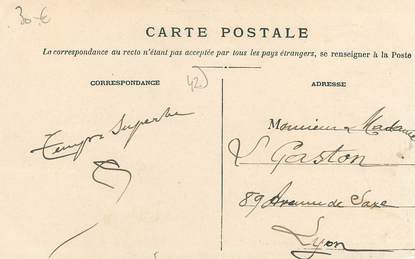 30 €
CARTE POSTALE
La correspondance au recto n'étant pas acceptée par tous les pays étrangers, se renseigner à la Poste
CORRESPONDANCE
42
ADRESSE
Temps Superbe
Monsieur & Madame
L Gaston
89 Avenue de Saxe
Lyon